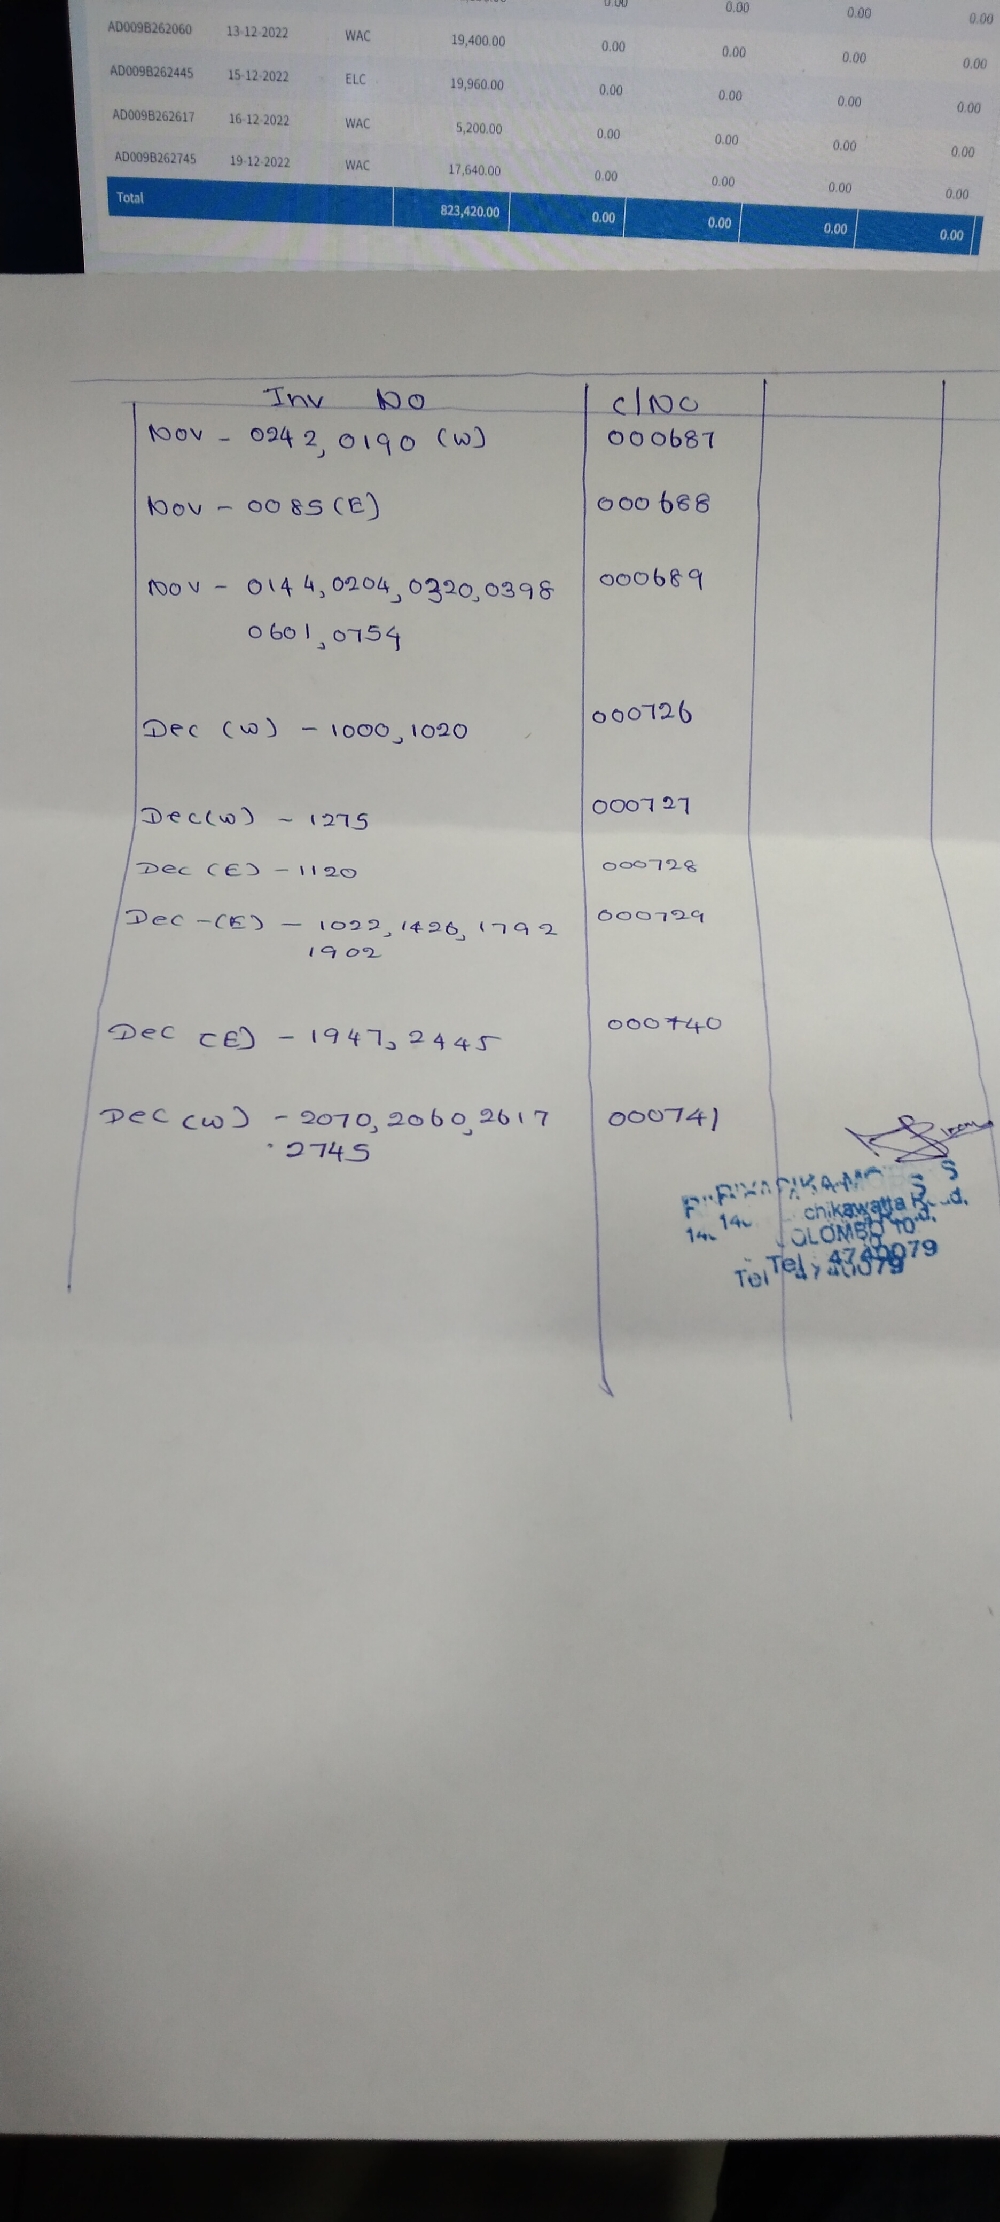 0.00 0.00 0.00 0.00
AD009B262060 13-12-2022 WAC 19,400.00 0.00 0.00 0.00 0.00
AD009B262445 15-12-2022 ELC 19,960.00 0.00 0.00 0.00 0.00
AD009B262617 16-12-2022 WAC 5,200.00 0.00 0.00 0.00 0.00
AD009B262745 19-12-2022 WAC 17,640.00 0.00 0.00 0.00 0.00
Total 823,420.00 0.00 0.00 0.00 0.00
Inv No C/No
Nov - 0242, 0190 (W) 000687
Nov - 0085 (E) 000688
Nov - 0144, 0204, 0320, 0398 000689
0601, 0754
Dec (W) - 1000, 1020 000726
Dec (W) - 1275 000727
Dec (E) - 1120 000728
Dec - (E) - 1022, 1426, 1792 000729
1902
Dec (E) - 1947, 2445 000740
Dec (W) - 2070, 2060, 2617 000741
2745
COLOMBO 10
Tel : 4740079
Tel 4740079